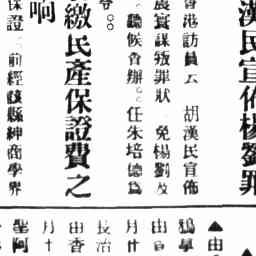 漢民宣佈楊劉罪
香港訪員云　胡漢民宣佈
震寰謀叛罪狀　免楊劉及
聽候查辦。任朱培德為
繳民產保證費之
啊
保證　前經該縣紳商學界
▲由
鴉學
由
月廿
技治
由香
月十